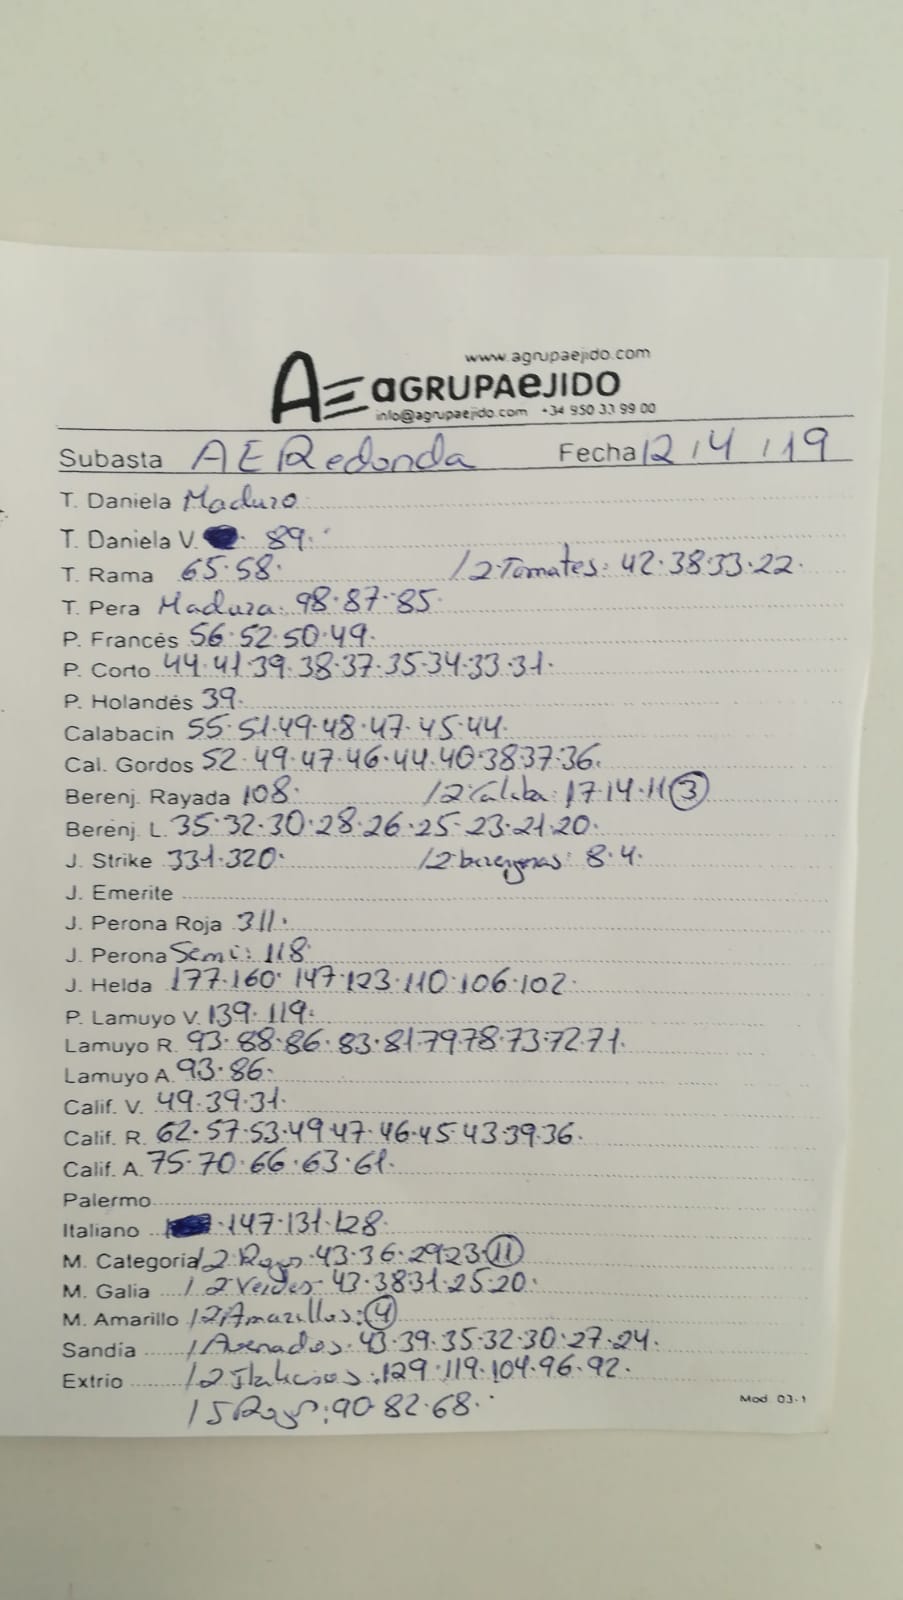 www.agrupaejido.com
AE aGRUPAeJIDO
info@agrupaejido.com +34 950 33 99 00
Subasta AE Redonda Fecha 12/4/19
T. Daniela Maduro
T. Daniela V. 89.
T. Rama 65.58. /2 Tomates: 42.38.33.22.
T. Pera Madura: 98.87.85
P. Francés 56.52.50.49.
P. Corto 44.41.39.38.37.35.34.33.31.
P. Holandés 39.
Calabacin 55.51.49.48.47.45.44.
Cal. Gordos 52.49.47.46.44.40.38.37.36.
Berenj. Rayada 108. /2 Calaba: 17.14.11 (3)
Berenj. L. 35.32.30.28.26.25.23.21.20.
J. Strike 331.320. /2 berenjenas: 8.4.
J. Emerite
J. Perona Roja 311.
J. Perona Semi: 118.
J. Helda 177.160.147.123.110.106.102.
P. Lamuyo V. 139.119.
Lamuyo R. 93.88.86.83.81.79.78.73.72.71.
Lamuyo A. 93.86.
Calif. V. 49.39.31.
Calif. R. 62.57.53.49.47.46.45.43.39.36.
Calif. A. 75.70.66.63.61.
Palermo
Italiano .147.131.128.
M. Categoria /2 Rojos 43.36.29.23 (11)
M. Galia /2 Verdes 43.38.31.25.20.
M. Amarillo /2 Amarillos: (4)
Sandia /Asenados: 43.39.35.32.30.27.24.
Extrio /2 Italicisos: 129.119.104.96.92.
/S Rojo: 90.82.68.
Mod. 03-1